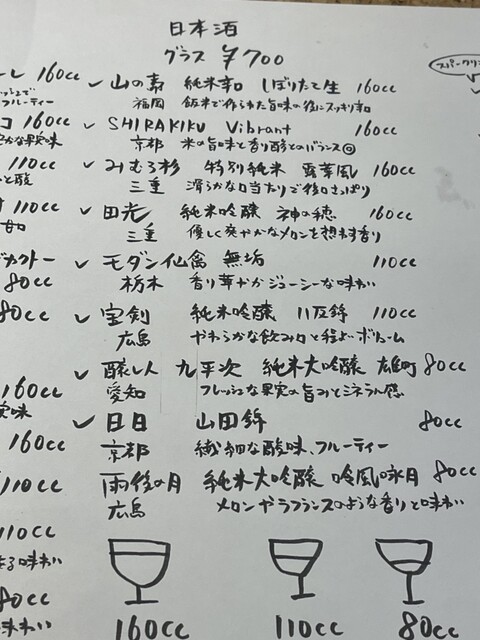 日本酒
グラス ¥700
スパークリン
レ 160cc
フルーティー
コ 160cc
かな果実味
110cc
と酸
110cc
80cc
80cc
160cc
160cc
110cc
110cc
る味わい
80cc
味わい
✓ 山の壽 純米辛口 しぼりたて生 160cc
福岡 飯米で作られた旨味の後にスッキリ辛口
✓ SHIRAKIKU Vibrant 160cc
京都 米の旨味と香り酸とのバランス◎
✓ みむろ杉 特別純米 露葉風 160cc
三重 滑らかな口当たりで後のさっぱり
✓ 田光 純米吟醸 神の穂 160cc
三重 優しく爽やかなメロンを想わす香り
✓ モダン仙禽 無垢 110cc
栃木 香り華やかジューシーな味わい
✓ 宝剣 純米吟醸 八反錦 110cc
広島 やわらかな飲み口と程よいボリューム
✓ 醸し人 九平次 純米大吟醸 雄町 80cc
愛知 フレッシュな果実の旨みとミネラル感
✓ 日日 山田錦 80cc
京都 繊細な酸味、フルーティー
雨後の月 純米大吟醸 吟風の咏月 80cc
広島 メロンやラフランスのような香りと味わい
160cc 110cc 80cc